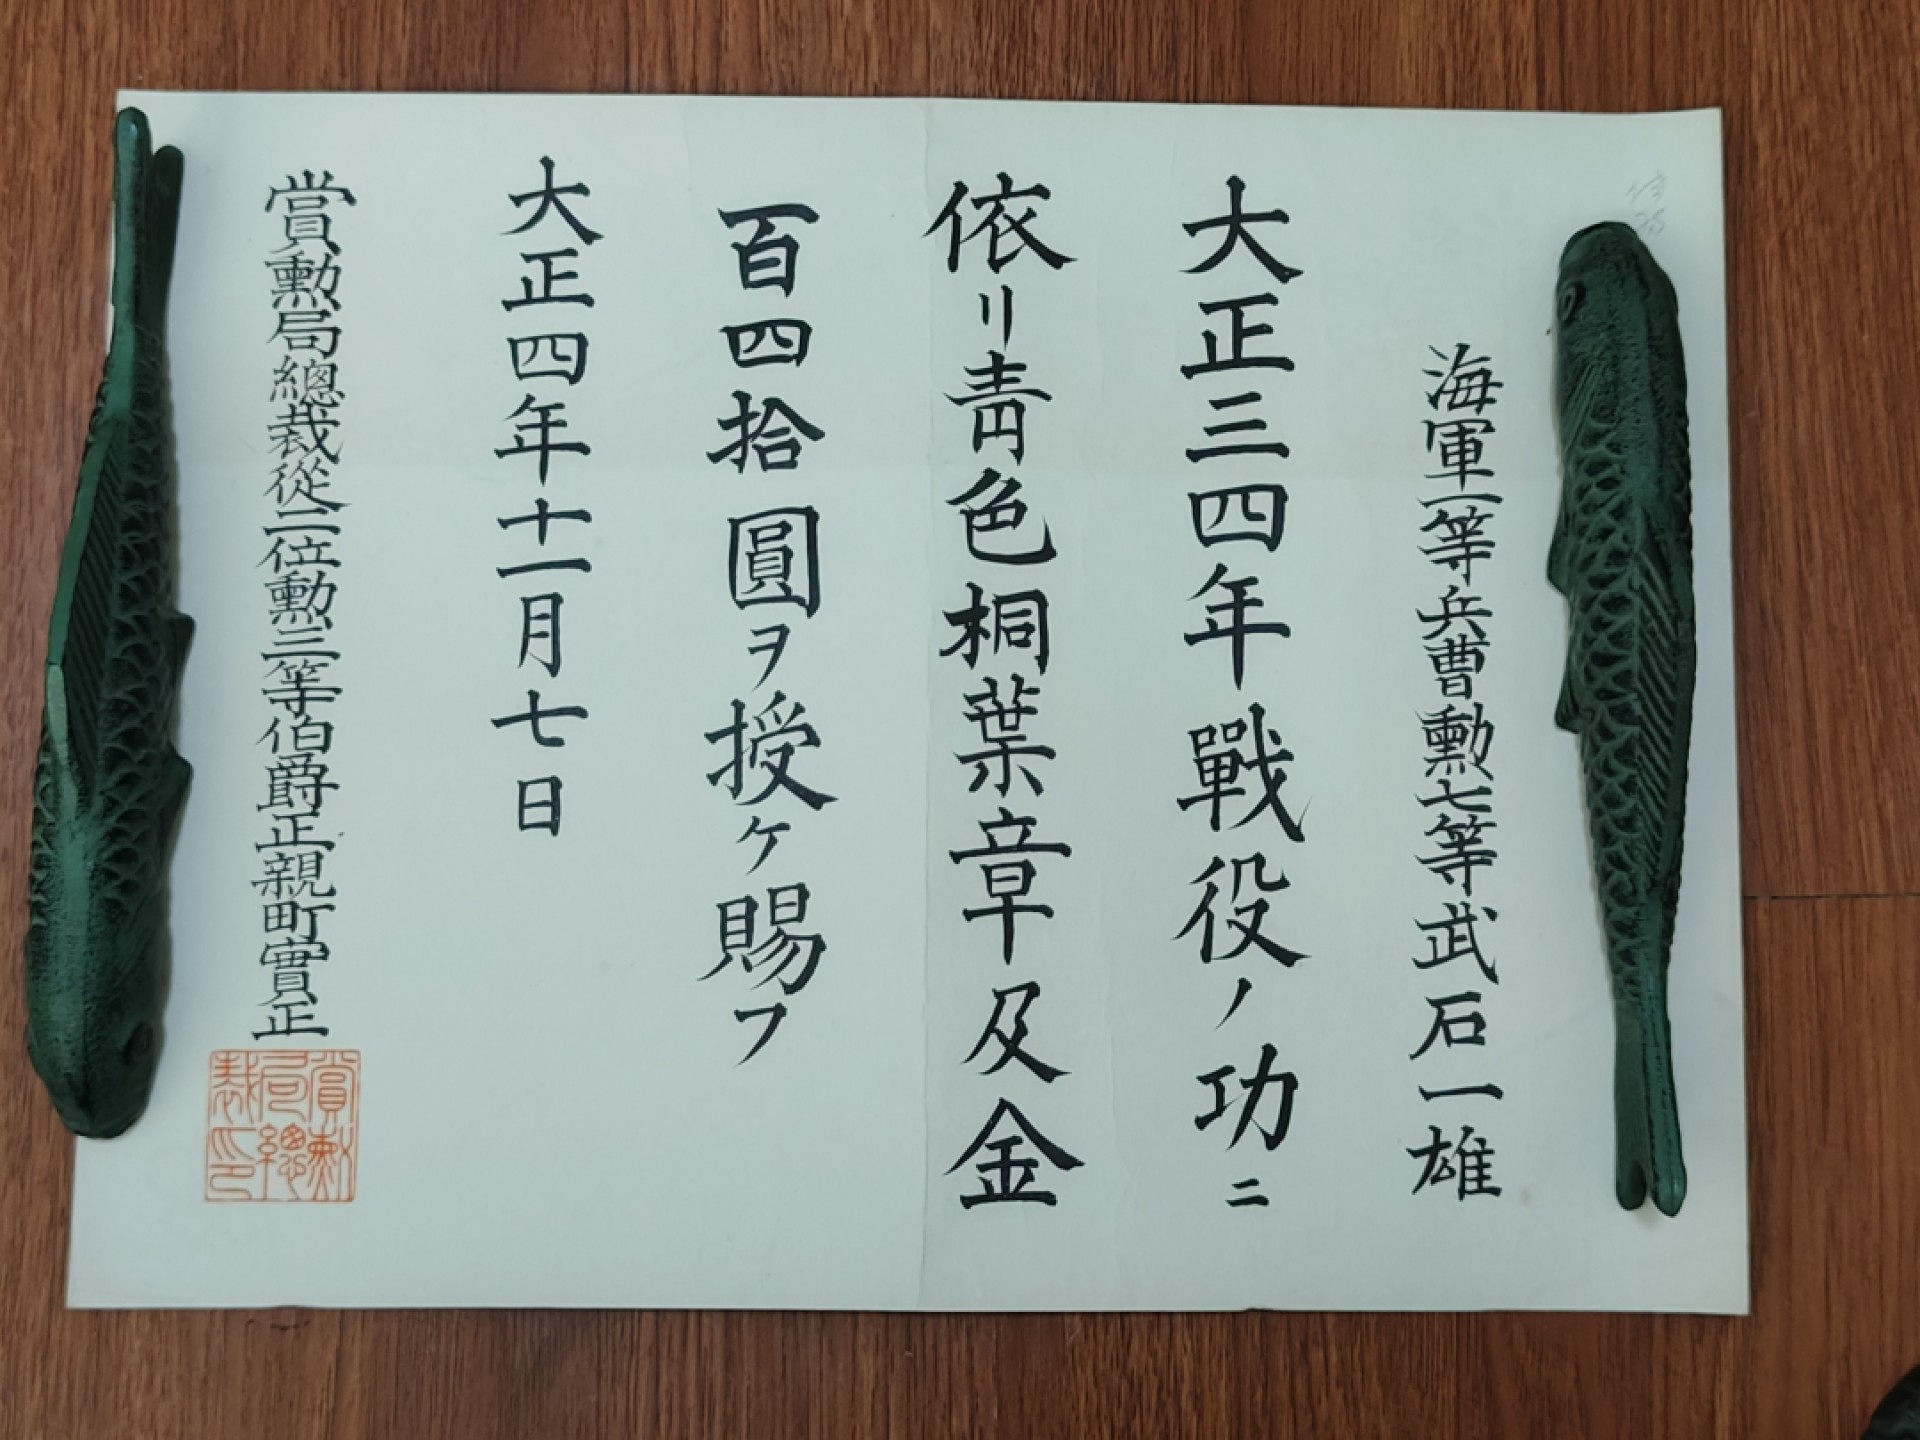 海軍一等兵曹勳七等武石一雄
大正三四年戰役ノ功ニ
依リ靑色桐葉章及金
百四拾圓ヲ授ケ賜フ
大正四年十一月七日
賞勳局總裁從二位勳三等伯爵正親町實正
賞勳
局總
裁印